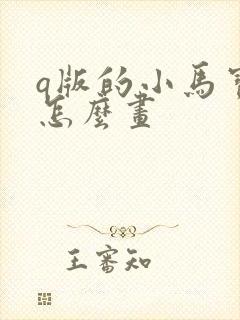 q版的小馬寶
怎麼畫
王審知